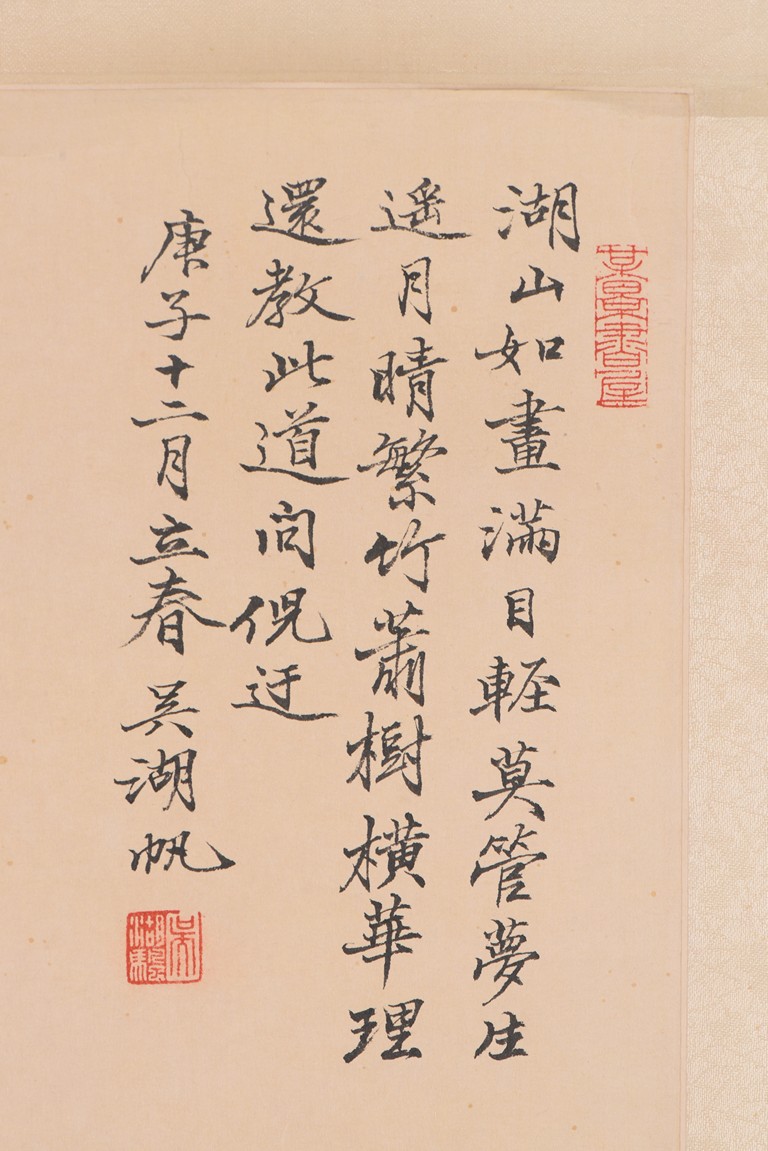 湖山如畫滿目輕莫管夢生
遥月晴繁竹蕭樹橫華理
還教此道问倪迂
庚子十二月立春吴湖帆
梅景書屋
吴湖帆